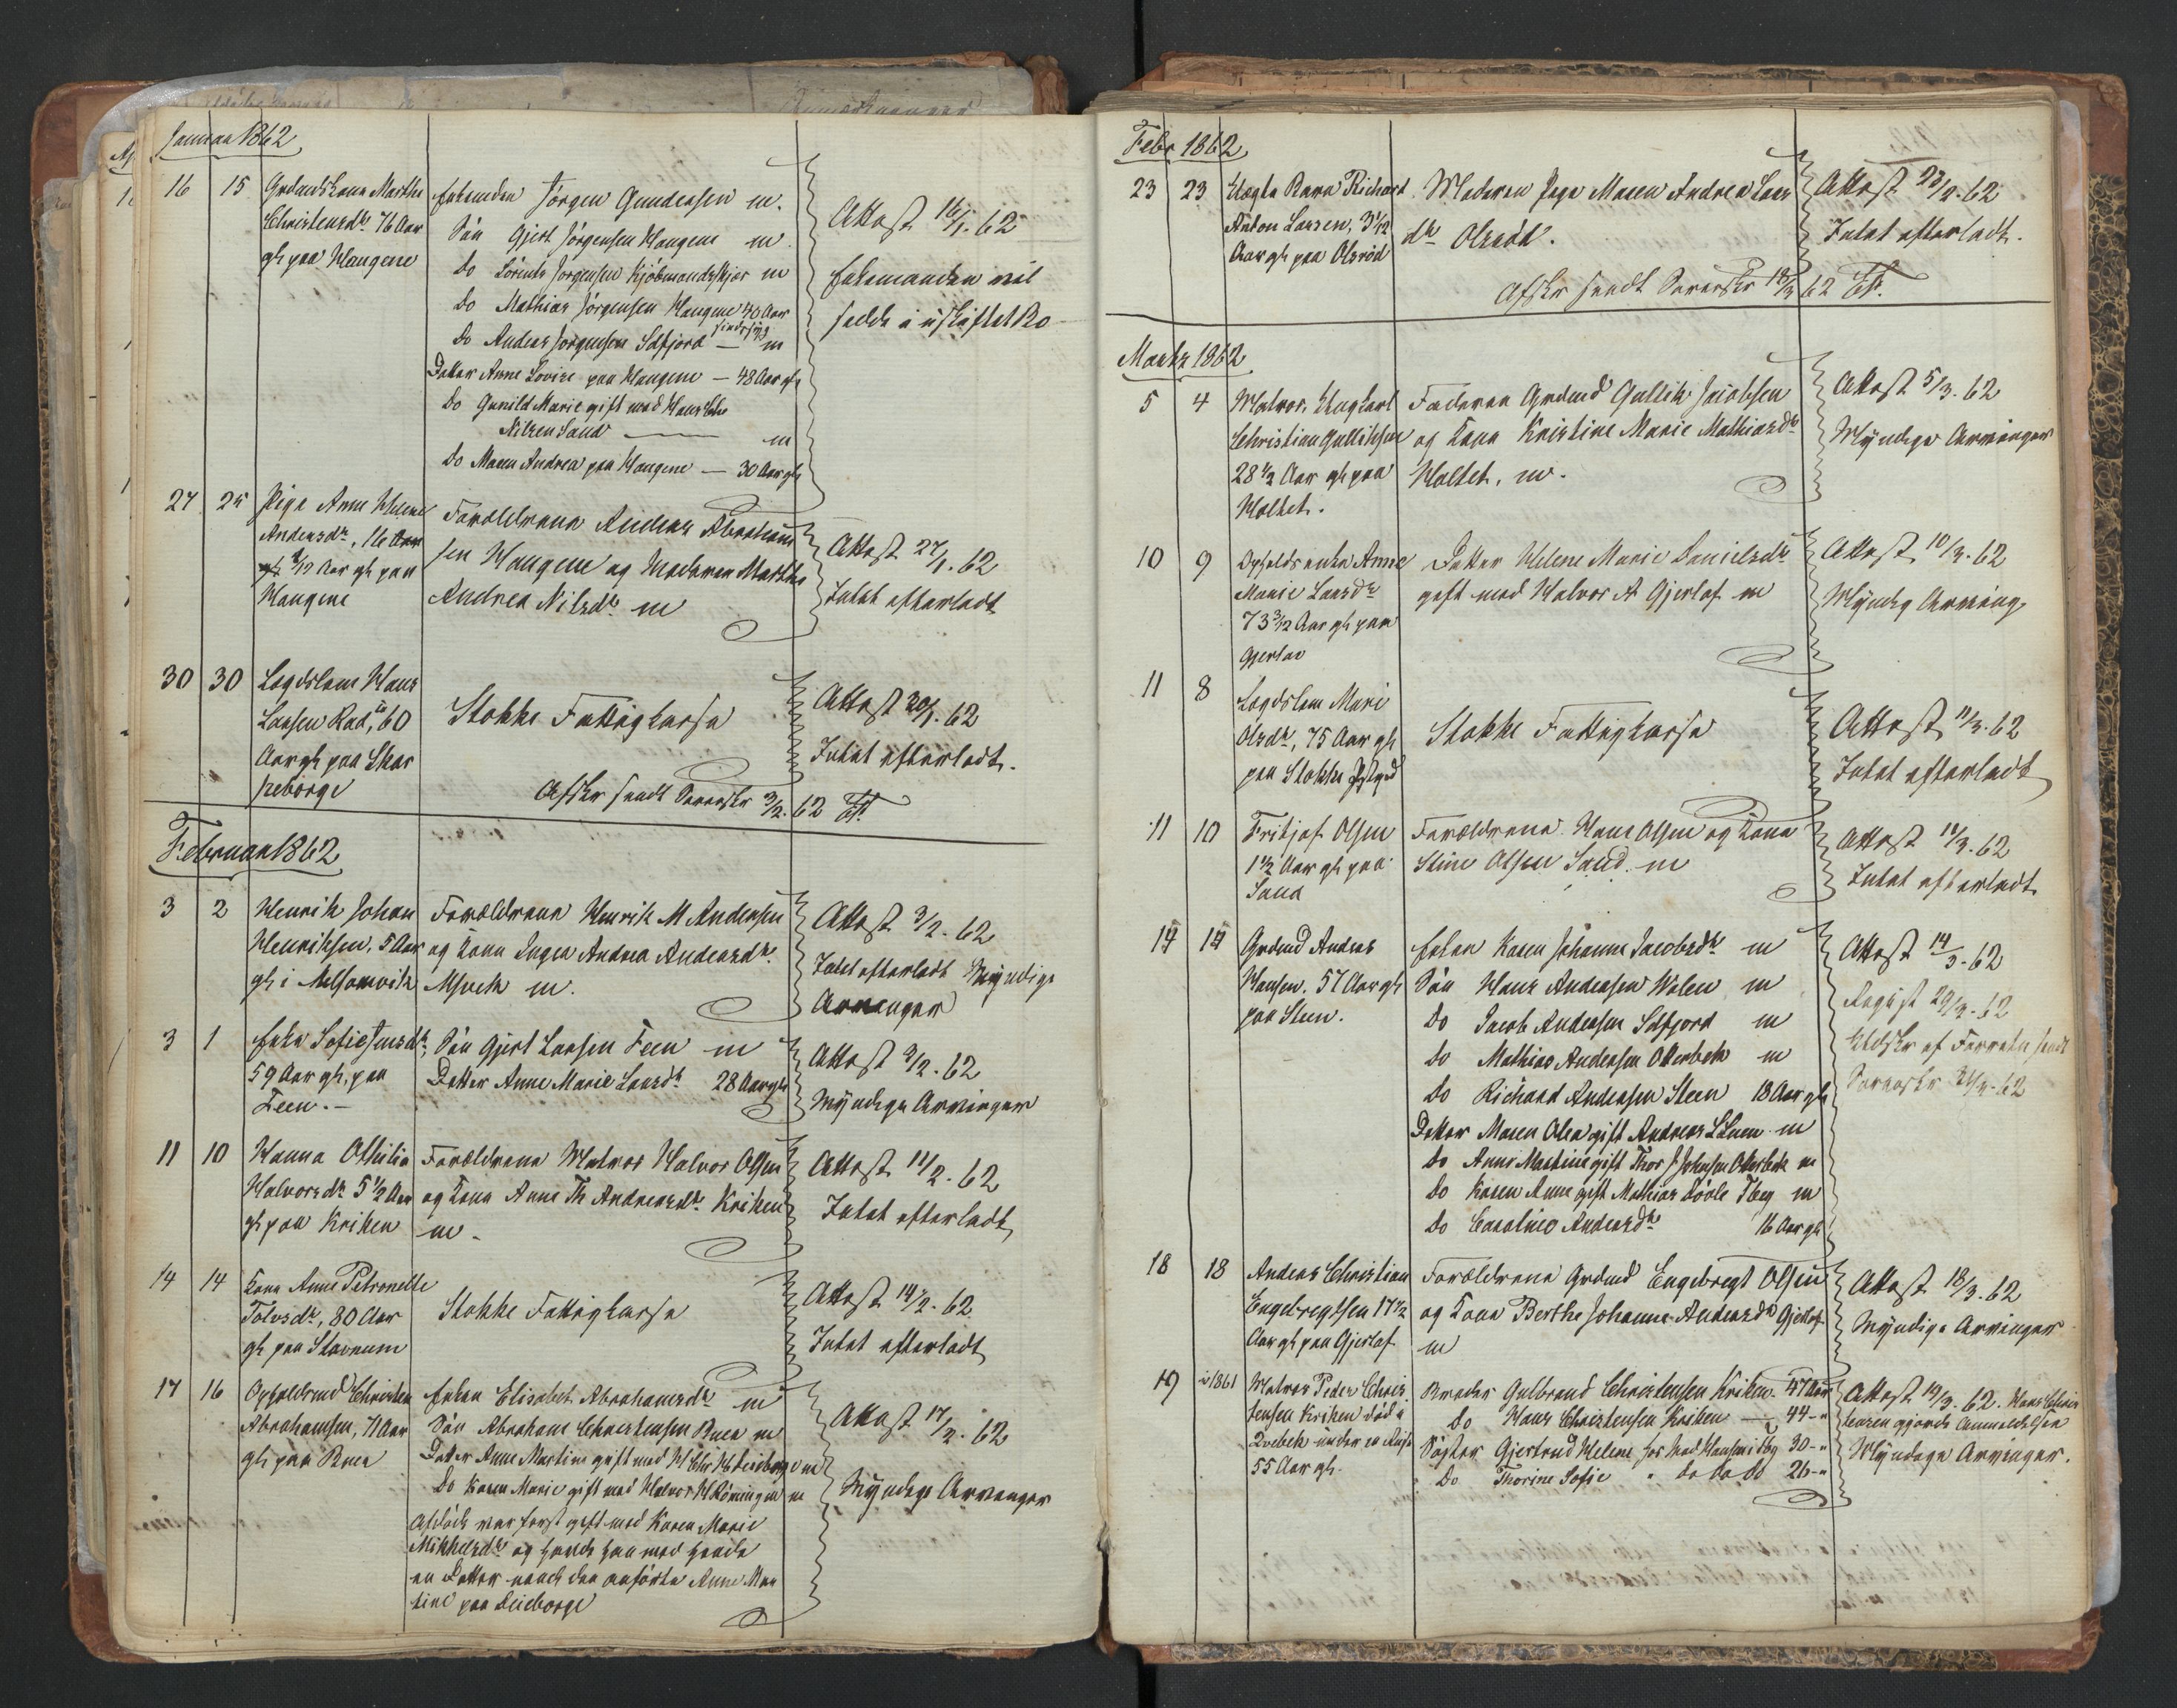 Januar 1862
16 15 Grdmdskone Marthe
Christensdr. 76 Aar
gl paa Haugene
Enkemanden Jørgen Gundersen m.
Søn Gjert Jørgensen Haugene m
Do Sørente Jørgensen Kjøbmandskjær m
Do Mathias Jørgensen Haugene 40 Aar
sindssyg
Do Anders Jørgensen Solfjord — m
Datter Anne Lovise paa Haugene — 48 Aar gl
Do Gunild Marie gift med Hans Chr
Nilsen Sand — m
Do Maren Andrea paa Haugene — 30 Aar gl
Attest 16/1. 62
Enkemanden vil
sidde i uskiftet Bo
27 25 Pige Anne Helene
Andersdr., 16 Aar
gl 3/12 Aar gl paa
Haugene
Forældrene Anders Abraham
sen Haugene og Moderen Marthe
Andrea Nilsdr. m
Attest 27/1. 62
Intet efterladt
30 30 Lægdslem Hans
Larsen Rad, 60
Aar gl paa Skor
peborge
Stokke Fattigkasse
Attest 30/1. 62
Intet efterladt.
Afskr sendt Sorenskr 3/2. 62
Februar 1862
3 2 Henrik Johan
Henriksen, 5 Aar
gl i Melsomvik
Forældrene Henrik M Andersen
og Kone Inger Andrea Andersdr.
Msvik m.
Attest 3/2. 62
Intet efterladt Myndige
Arvinger
3 1 Enke Sofie Jensdr.,
59 Aar gl, paa
Feen. —
Søn Gjert Larsen Feen m
Datter Anne Marie Larsdr 28 Aar gl
Attest 3/2. 62
Myndige Arvinger
11 10 Hanna Othilia
Halvorsdr 5 1/2 Aar
gl paa Kriken
Forældrene Matros Halvor Olsen
og Kone Anne Th Andreasdr. Kriken
m.
Attest 11/2. 62
Intet efterladt
14 14 Kone Anne Petronelle
Tolvsdr, 80 Aar
gl paa Stavnum
Stokke Fattigkasse
Attest 14/2. 62
Intet efterladt
17 16 Opholdsmd Christen
Abrahamsen, 71 Aar
gl paa Ruen
Enken Elisabet Abrahamsdr m
Søn Abraham Christensen Ruen m
Datter Anne Martine gift med H Chr H Leieborge m
Do Karen Marie gift med Halvor H Røningen m
Afdøde var først gift med Karen Marie
Mikkelsdr og havde han med hende
en Datter neml den anførte Anne Mar
tine paa Leieborge
Attest 17/2. 62
Myndige Arvinger
Febr 1862
23 23 Uægte Barn Richard
Anton Larsen, 3 1/12
Aar gl paa Olsrød
Moderen Pige Maren Andrea Lars
dr Olsrød.
Attest 23/2. 62
Intet efterladt.
Afskr sendt Sorenskr 18/3 62
Marts 1862
5 4 Matros, Ungkarl
Christian Gulliksen
28 1/2 Aar gl paa
Holtet.
Faderen Grdmd Gullik Jacobsen
og Kone Kristine Marie Mathiasdr
Holtet, m.
Attest 5/3. 62
Myndige Arvinger
10 9 Opholdsenke Anne
Marie Larsdr
73 3/12 Aar gl paa
Gjerlov
Datter Helene Marie Danielsdr
gift med Halvor A Gjerlof m
Attest 10/3. 62
Myndig Arving
11 8 Lægdslem Mari
Olsdr, 75 Aar gl
paa Stokke Pstgd
Stokke Fattigkasse
Attest 11/3. 62
Intet efterladt
11 10 Fritjof Olsen
1 1/2 Aar gl paa
Sand
Forældrene Hans Olsen og Kone
Stine Olsen Sand. m
Attest 11/3. 62
Intet efterladt
14 14 Grdmd Anders
Hansen. 57 Aar gl
paa Steen.
Enken Karen Johanne Jacobsdr m
Søn Hans Andersen Holen m
Do Jacob Andersen Solfjord m
Do Mathias Andersen Otterbek m
Do Richard Andersen Steen 18 Aar gl
Datter Maren Olea gift Andreas L Luen m
Do Anne Martine gift Thor J Johnsen Otterbek m
Do Karen Anne gift Mathias Løvle Tbeg m
Do Caroline Andersdr 16 Aar gl
Attest 14/3. 62
Regist 29/3. 62
Udskr af Forretn sendt
Sorenskr 31/3. 62
18 18 Anders Christian
Engebregtsen 17 1/2
Aar gl paa Gjerlof
Forældrene Grdmd Engebregt Olsen
og Kone Berthe Johanne Andersdr Gjerlof
m
Attest 18/3. 62
Myndige Arvinger
19 i 1861 Matros Peder Chris
tensen Kriken død i
Qvebek under en Reise
55 Aar gl.
Broder Gulbrand Christensen Kriken 47 Aar
Do Hans Christensen Kriken — 44 - "
Søster Gjertrud Helene hos Hansen i Tbg 30 - "
Do Thorine Sofie " do do do 26 - "
Attest 19/3. 62. Hans Chris
tensen gjorde Anmeldelsen
Myndige Arvinger.